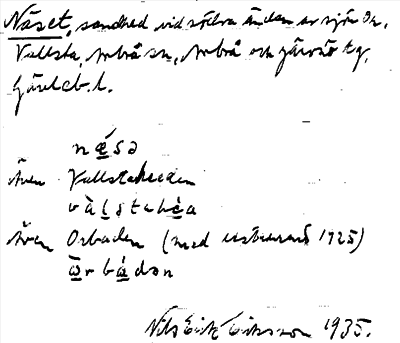 Näset, sandhed vid södra ändan av sjön Ön,
Vallsta, Arbrå sn, Arbrå och Järvsö tg,
Gävleb. l.
næ´sə
även Vallstaheden
vàlstahèa
även Orbaden (med restaurant 1925)
ɷ̀rbádən
Nils Erik Eriksson 1935.